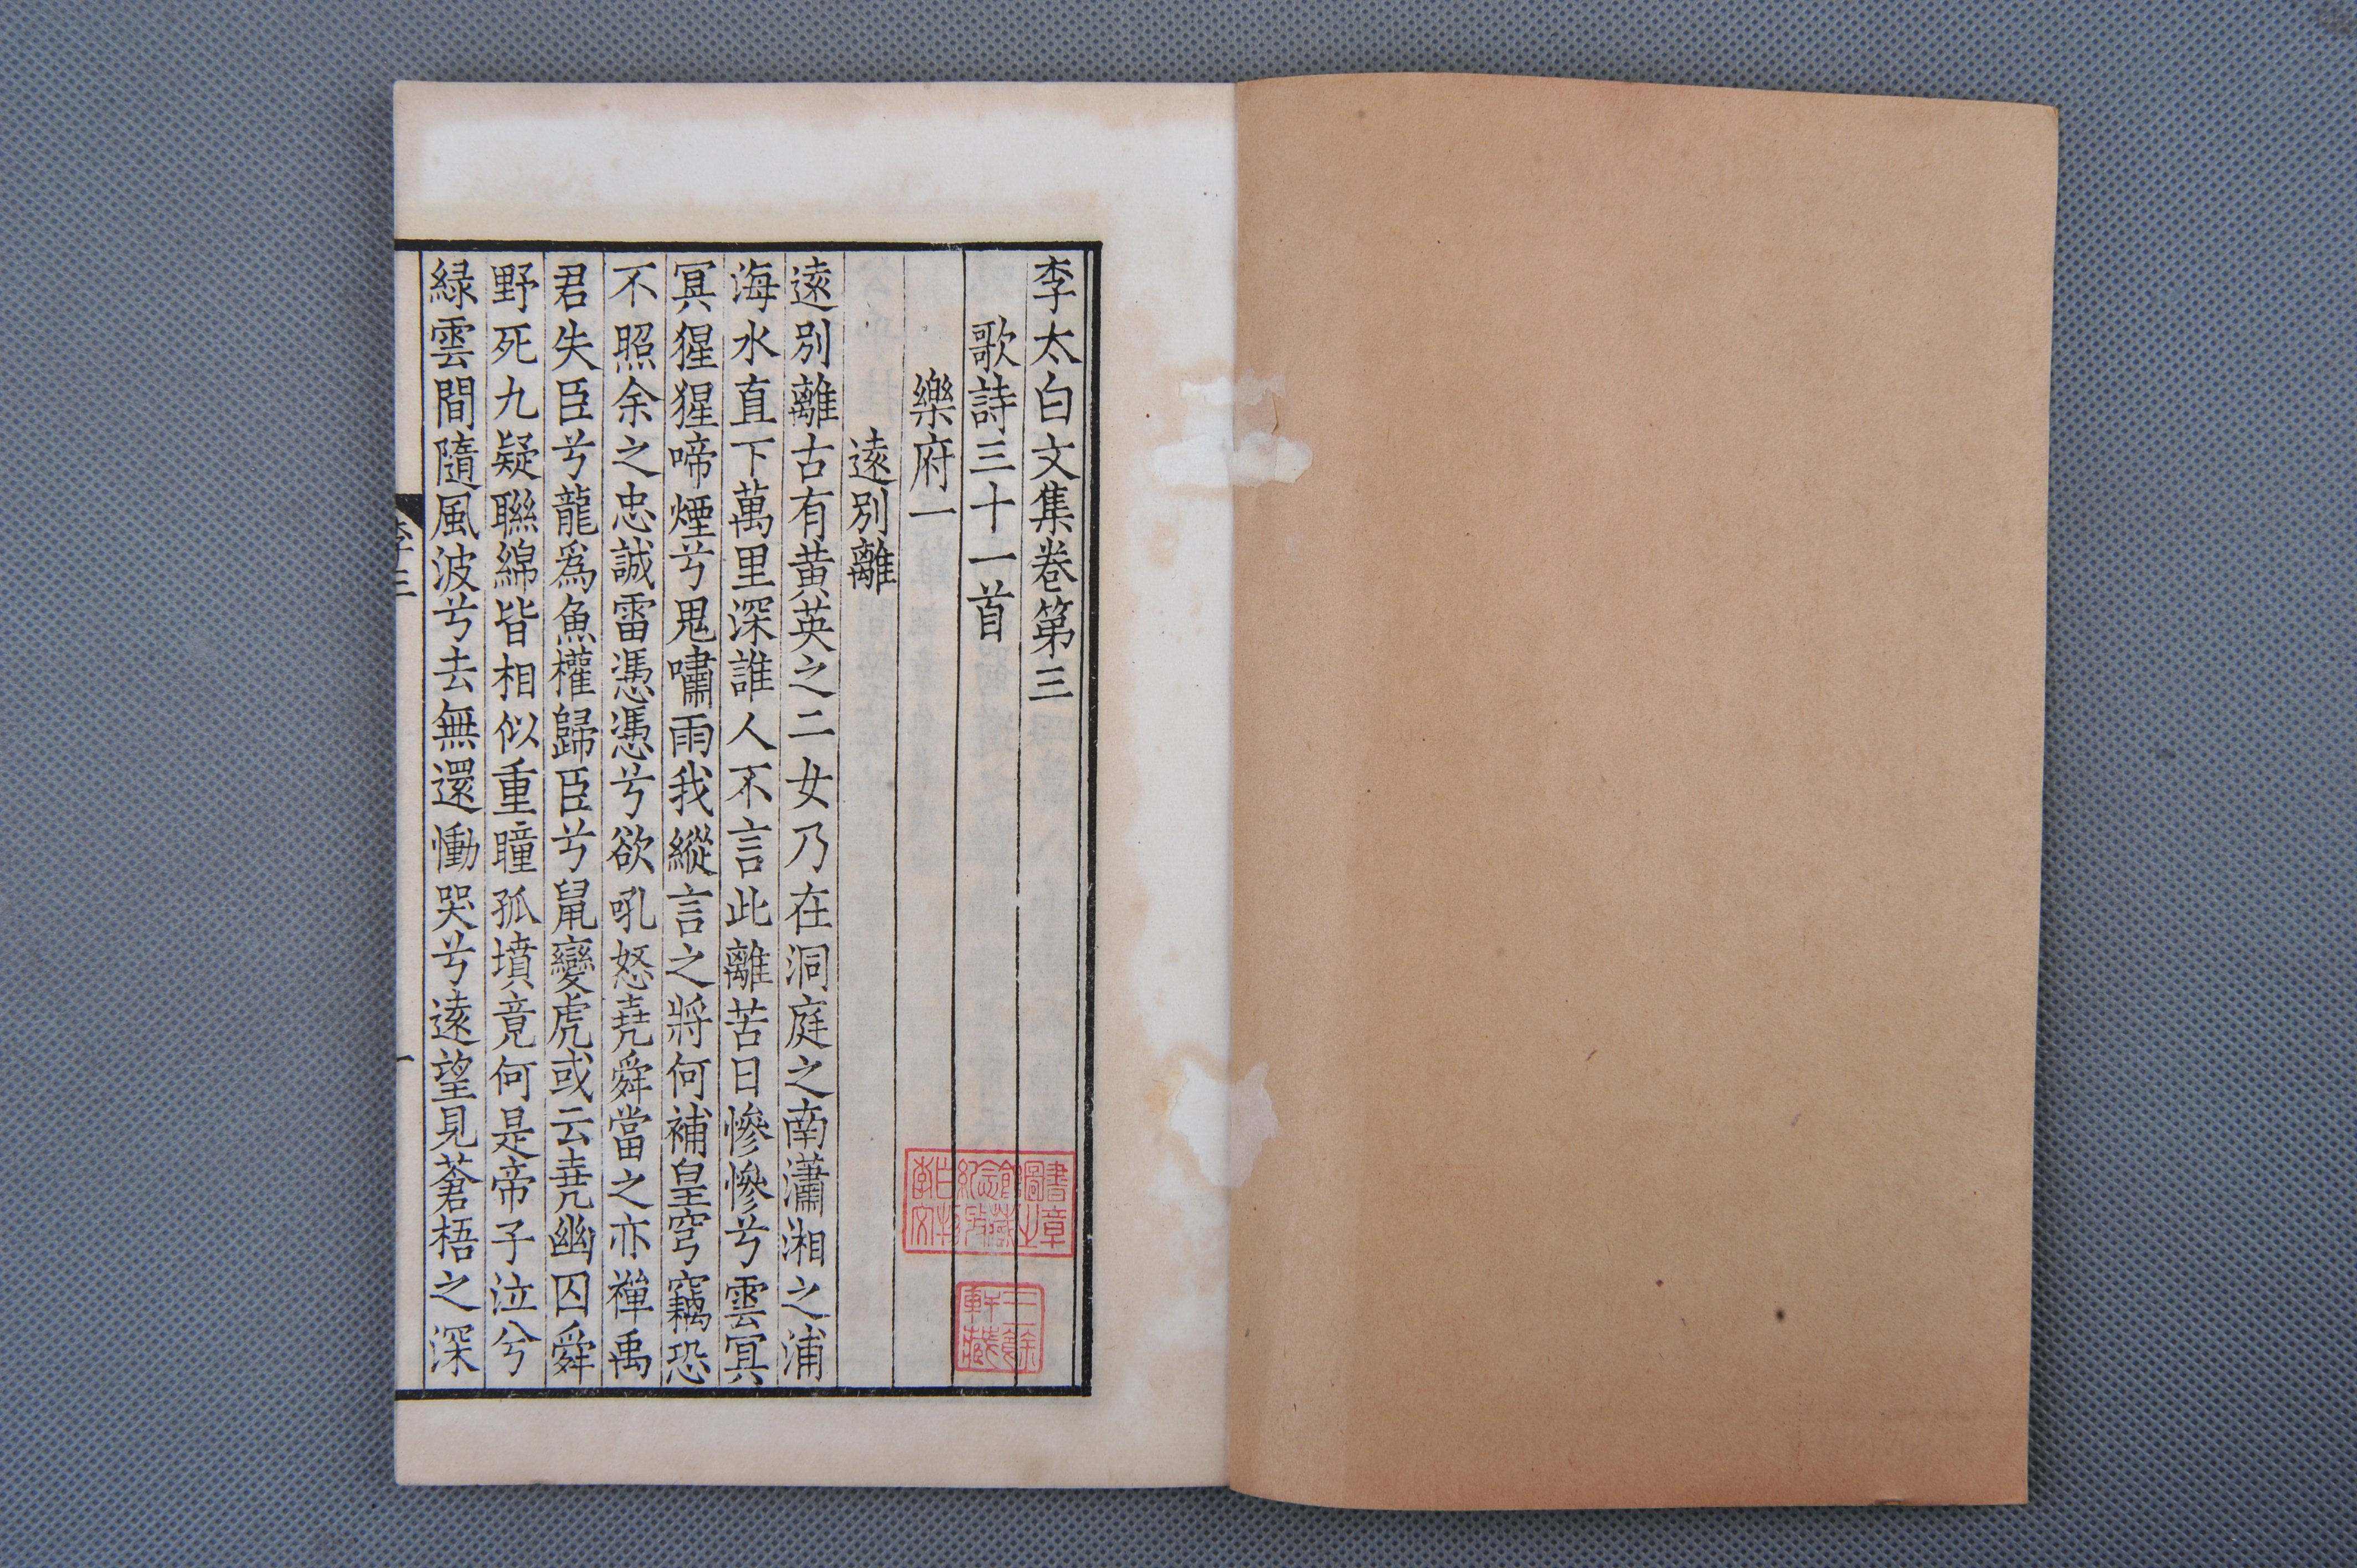 李太白文集卷第三
歌詩三十一首
樂府一
逺別離
逺別離古有黃英之二女乃在洞庭之南瀟湘之浦
海水直下萬里深誰人不言此離苦日慘慘兮雲冥
冥猩猩啼煙兮鬼嘯雨我縱言之將何補皇穹竊恐
不照余之忠誠雷憑憑兮欲吼怒堯舜當之亦禪禹
君失臣兮龍爲魚權歸臣兮鼠變虎或云堯幽囚舜
野死九疑聯綿皆相似重瞳孤墳竟何是帝子泣兮
緑雲間隨風波兮去無還慟哭兮逺望見蒼梧之深
李三
一
書章
圖之
館藏
念
紀
白
李
三餘
軒藏